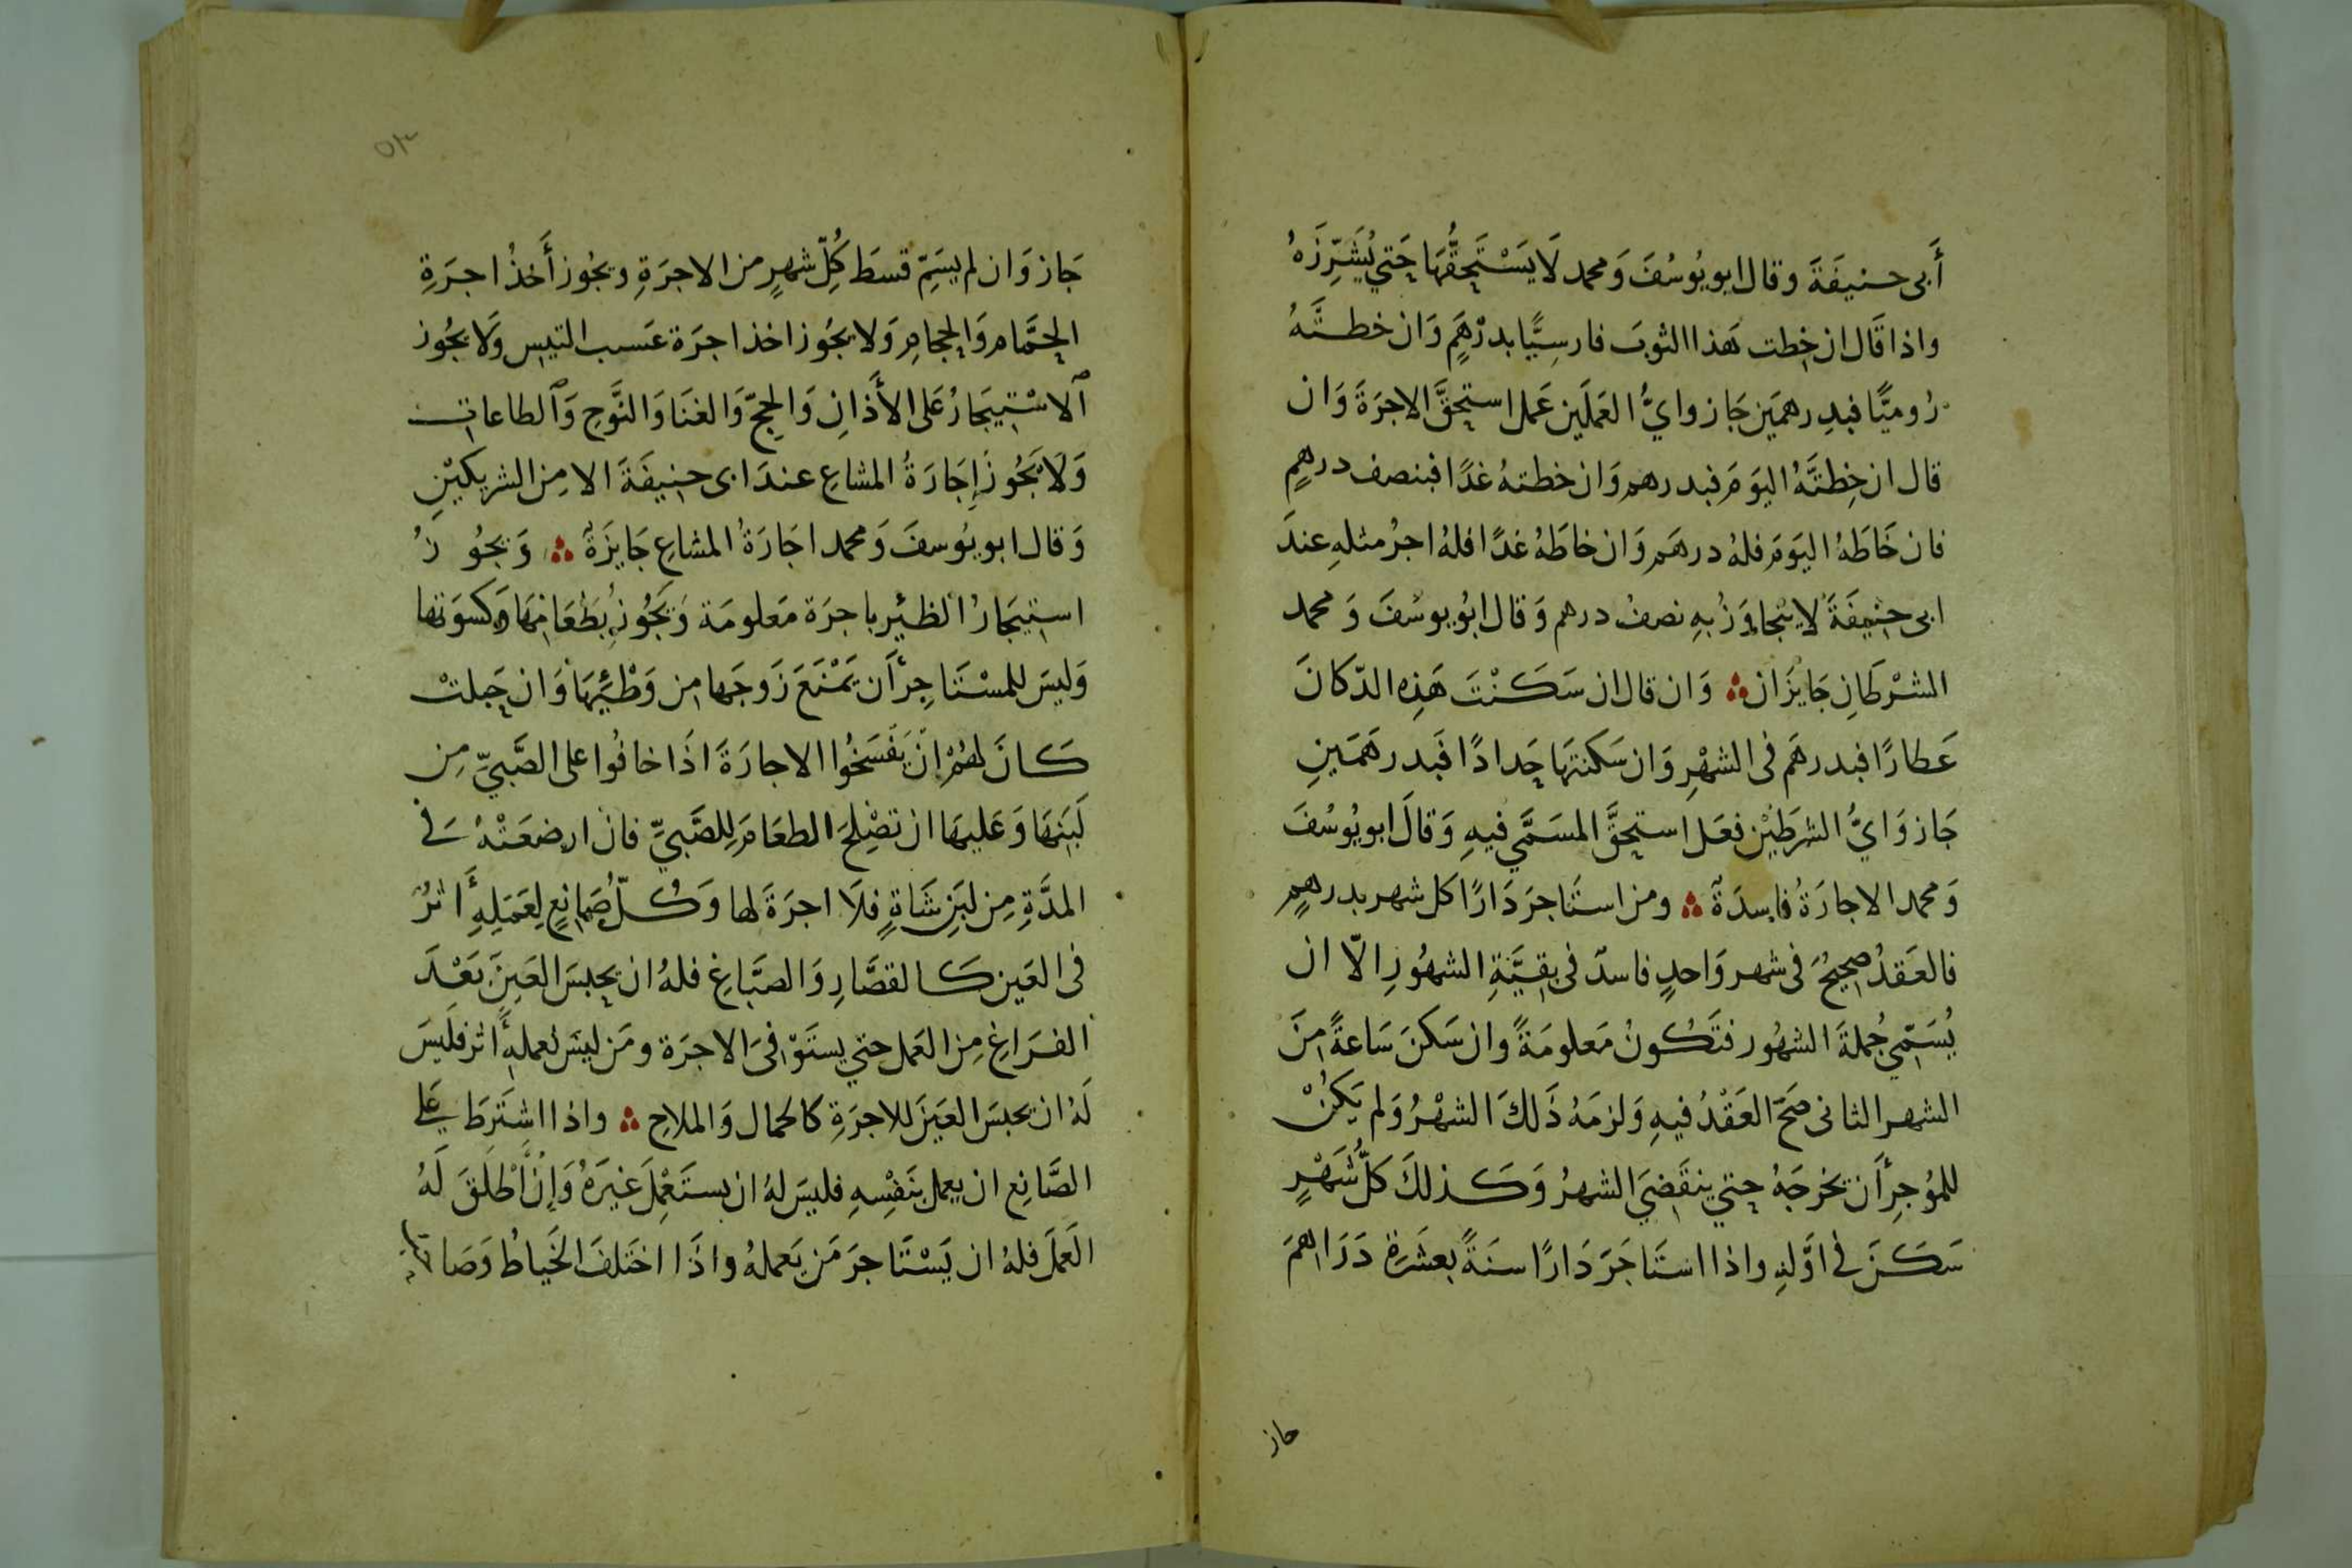 أَبى حنيفَةَ وقال ابو يُوسُفَ وَمحمد لَا يَسْتَحِقُّهَا حَتي يُشَرِّزَهُ
واذا قَال ان خِطت هَذا الثوبَ فارسِيًّا بدرْهَمٍ وَان خطتَّهُ
رُوميًّا فبدِرهمَين جَاز وايُّ العَمَلَين عَمل استحِقَّ الاجرَةَ وَان
قال ان خِطتَّهُ اليَومَ فبدرهم وَان خطتهُ غدًا فبنصف درهمٍ
فان خَاطَهُ اليَومَ فلهُ درهَم وَان خاطَهُ غدًا فلهُ اجرُ مثلهِ عندَ
ابى حنيفَةَ لا يتجاوَزُ بهِ نصفُ درهم وَقال ابُو يوسُفَ وَ محمد
الشرْطَانِ جَايزَان وَان قال ان سَكَنْتَ هَذِه الدّكانَ
عَطارًا فبدرهَم فى الشهْرِ وَان سَكنتهَا حِدادًا فَبدرهَمَينِ
جَاز وَايُّ الشرطَيْنِ فعَل استحِقَّ المسَمَّي فيهِ وَقالَ ابو يُوسُفَ
وَمحمد الاجارَةُ فاسِدَةٌ ومن استَاجرَ دَارًا كل شهر بدرهمٍ
فالعَقدُ صحِيحُ فى شهر وَاحدٍ فاسدّ فى بقِيَّةِ الشهُورِ الّا ان
يُسَمّي جُملةَ الشهُور فتَكُونُ مَعلومَةً وان سَكنَ سَاعةً مِنَ
الشهر الثانى صَحَّ العَقْدُ فيهِ وَلزمَهُ ذَلكَ الشهْرُ وَلم يَكنْ
للمُوجِرِ أَن يخرجَهُ حتي ينقَضِيَ الشهرُ وَكَذلكَ كلُّ شَهْرٍ
سَكَنَ فى اوَّلهِ واذا استَاجَرَ دَارًا سنَةً بعشَرةِ دَرَاهمَ
جاز
جَاز وَان لم يسَمِّ قسطَ كُلِّ شهرٍ من الاجرَةِ ويجُوز أَخذُ اجرَةِ
الحمَّام وَالحجامِ وَلا يجَوز اخذ اجرَة عَسب التيس وَلَا يجُوز
الاسْتيجَارُ عَلى الأَذَانِ وَالحجّ وَالغنَا وَالنَّوحِ وَالطاعات
وَلَا يَجُوزَ إجَارَةُ المشاعِ عندَ ابى حنيفَةَ الا مِن الشريكيْنِ
وَقال ابو يُوسفَ وَمحمد اجَارَةُ المشاعِ جَايزَةٌ وَيجُوزُ
استيجَارُ الظئيرِ باجرَة مَعلومَة وَيَجُوزُ بطَعَامِهَا وَكسوَتها
وَليسَ للمسْتَاجِرِ أَن يَمْنَعَ زَوجَها من وَطْئِهَا وَان حِبلتْ
كَانَ لهُمْ انْ يَفْسَخُوا الاجارَةَ اذَا خافُوا على الصَّبيِّ مِن
لَبَنِهَا وَعَليهَا ان تصْلِحَ الطعَامَ لِلصَّبيِّ فان ارضعَتْهُ فى
المدَّةِ مِن لبَنِ شَاةٍ فلَا اجرَةَ لها وَكُلّ صَانِعٍ لِعَمَلِهِ أَثرُ
فى العَين كَالقصَّارِ وَالصبَّاغِ فلهُ ان يحِبسَ العَينَ بَعْدَ
الفرَاغِ مِن العَمل حتي يستَوْفىَ الاجرَة ومَن ليسَ لعملهِ أثر فلَيسَ
لَهُ ان يحبسَ العَينَ للاجرَةِ كالحمال وَالملاحِ واذا اشتَرطَ على
الصَّانِع ان يعمل بنَفْسِهِ فليسَ لهُ ان يستَعْمِلَ غيرَهُ وَإنْ اطْلَقَ لَهُ
العَملَ فلهُ ان يَسْتَاجرَ مَن يَعملهُ واذَا اختَلفَ الخَياطُ وَصَا